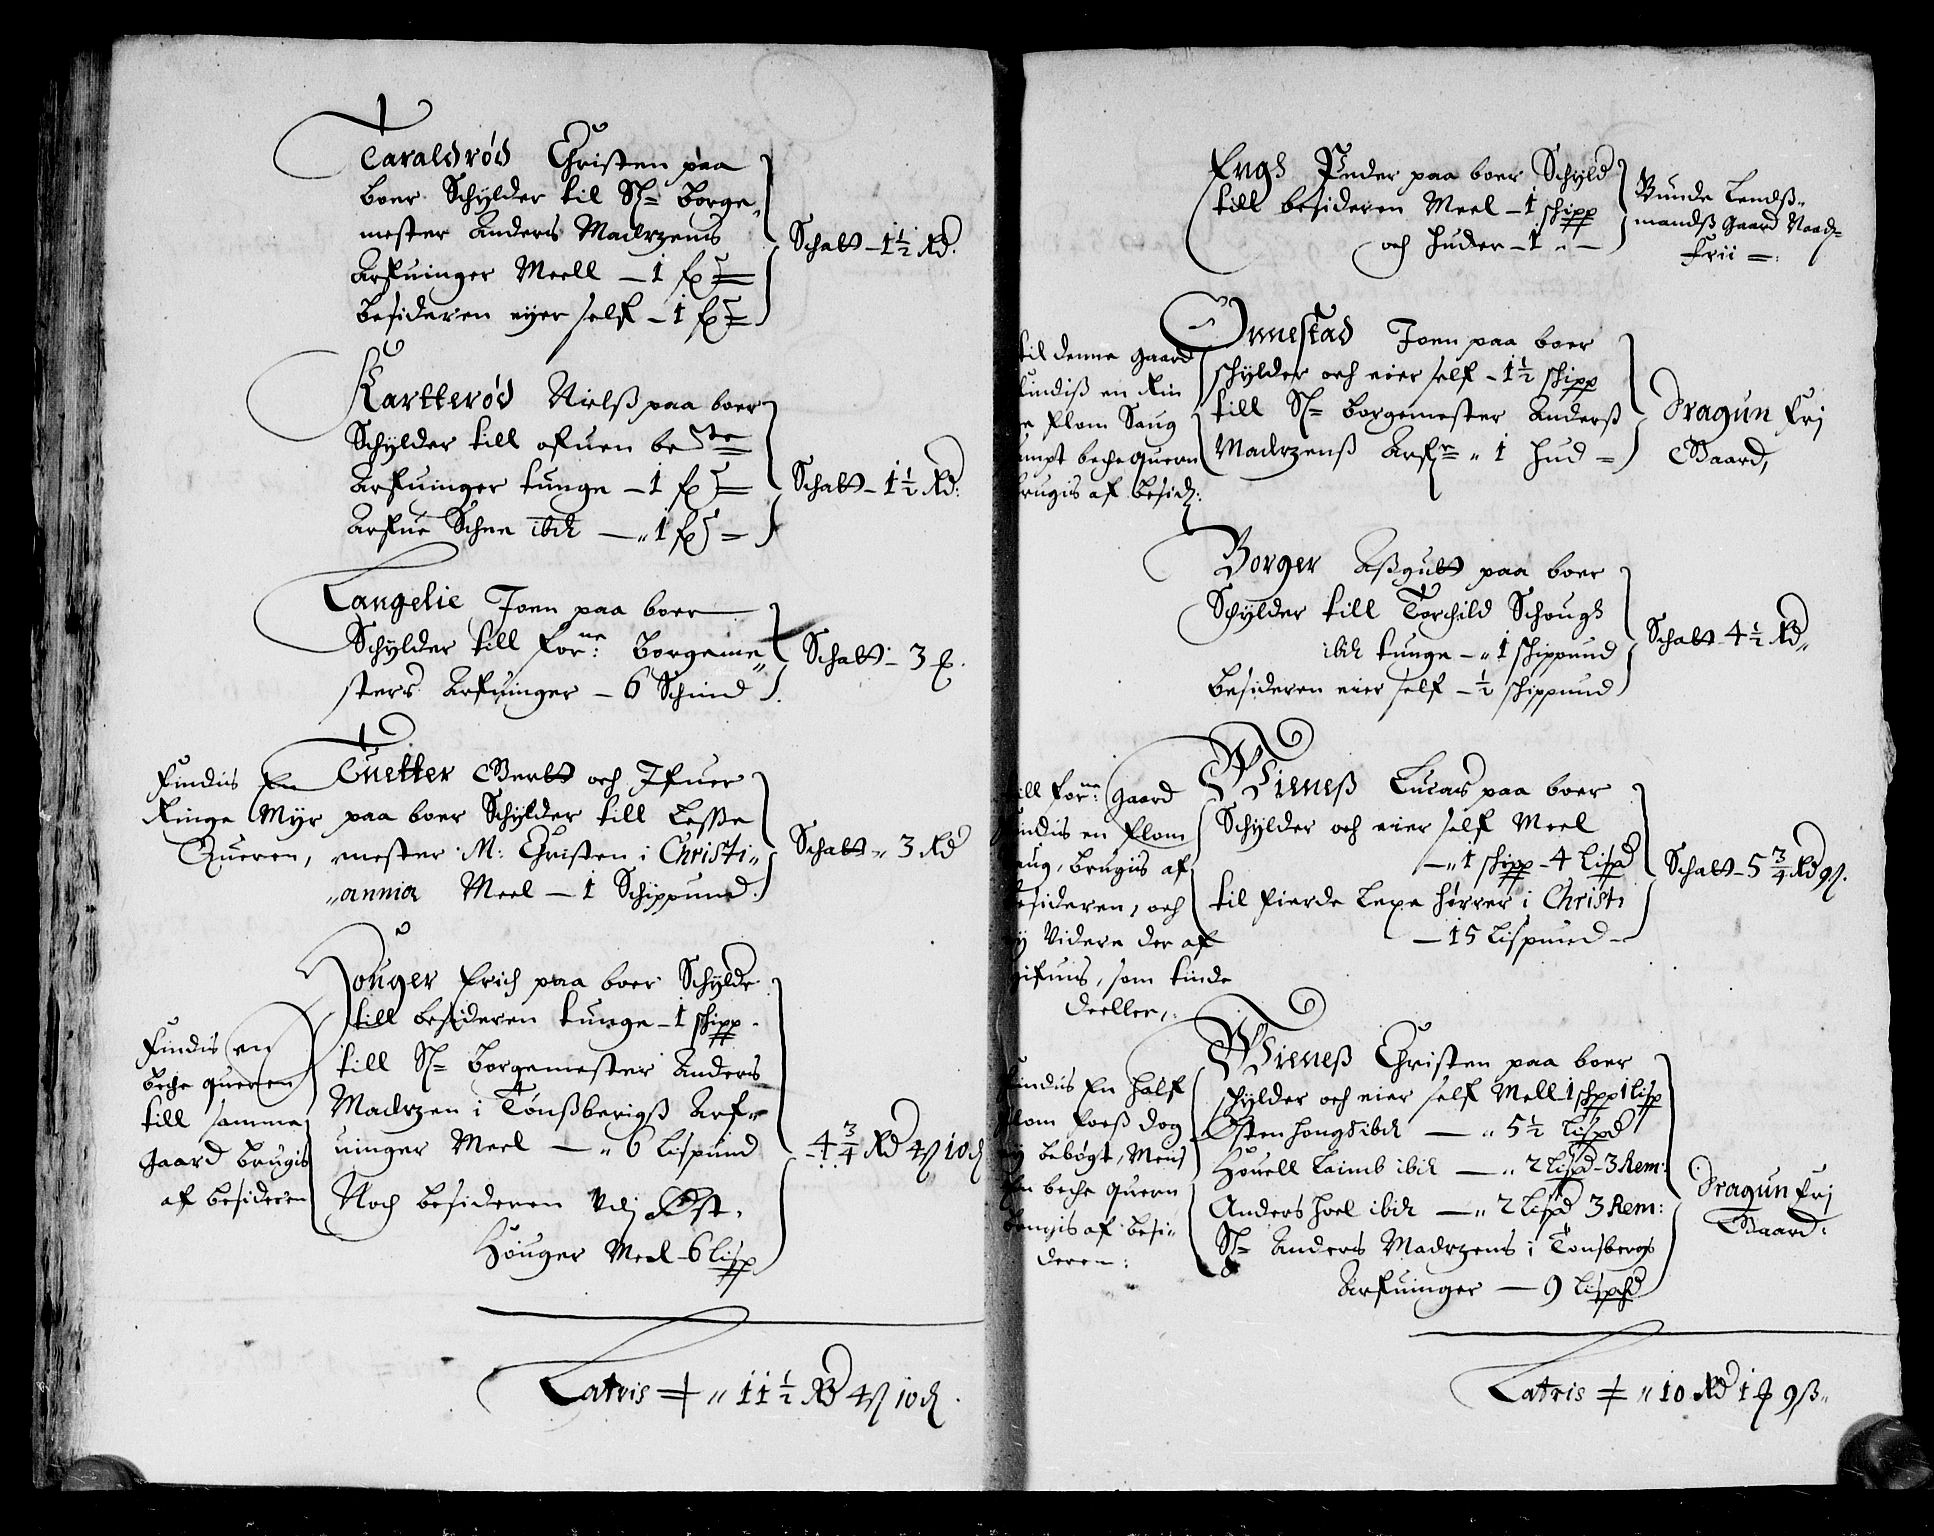 Taraldrød Christen paa
boer Schylder til Sl= Borge„
mester Anders Madtzens
Arfuinger Meell — 1
besideren eyer self — 1
Schatt — 1½ Rd.
Kartterød Nielß paa boer
Schylder till ofuen be
Arfuinger tunge — 1
Arfue Schee ibid — „ 1
Schatt — 1½ Rd:
Langelie Joen paa boer
Schylder till for:ne Borgeme„
sters Arfuinger — 6 Schind
Schatt — 3
Findis En
Ringe Myr
Queren,
Tuetter Bertt och Ifuer
paa boer Schylder till Lesse
mester M: Christen i Christi„
„annia Meel — 1 Schippund.
Schatt „ 3 Rd
Findis en
beche queren
till samme
gaard brugis
af besideren
Houger Erich paa boer Schylder
till besideren tunge — 1 schipp.
till Sl= Borgemester Anders
Madtzen i Tønßberigß Arf„
uinger Meel — „ 6 Lispund
Noch besideren Vdj Øst.
Houger Meel — 6 Lisp
4¾ Rd 4ß 10
Latris „ 11½ Rd 4ß 10
Engh Peder paa boer Schyld
till besideren Meel — 1 schipp
och huder — 1 „ —
Bunde Lendß„
mandß Gaard
Frii
til denne gaard
findiß en Rin
ge Flom Saug
sampt beche quern
brugis af besid:
Ormestad Joen paa boer
schylder och eier self — 1½ schipp
till Sl= Borgemester Anderß
Madtzenß Arf „ 1 hud
Dragun Frj
Gaard,
Borger Aßgutt paa boer
Schylder till Torchild Schougs
ibid tunge — „ 1 schippund
besideren eier self — ½ schippund
Schatt 4½ Rd„
till for:ne gaard
findis en Flom
saug, brugis af
besideren, och
ey Videre der af
gifuis, som tinde
deeller,
Wieneß Lucas paa boer
Schylder och eier self Meel
— „ 1 schipp — 4 Lispd
til Fierde Lexe hører i Christi
— 15 Lispund —
Schatt — 5¾ Rd 9ß.
Findis En half
Flom Foeß dog
ey bebøgt, Mens
En beche quern
brugis af besi„
deren:
Wieneß Christen paa boer
schylder och eier self Mell 1 schpp 1 Lisp
Østen hougs ibid — „ 5½ Lispd
Houell Laimb ibid — „ 2 Lispd — 3 Rem:
Anders hoel ibid — „ 2 Lispd 3 Rem:
Sl= Anders Madtzens i Tonsbergs
Arfuinger — 9 Lispd
Dragun Frj
Gaard:
Latris „ 10 Rd 1 9ß„